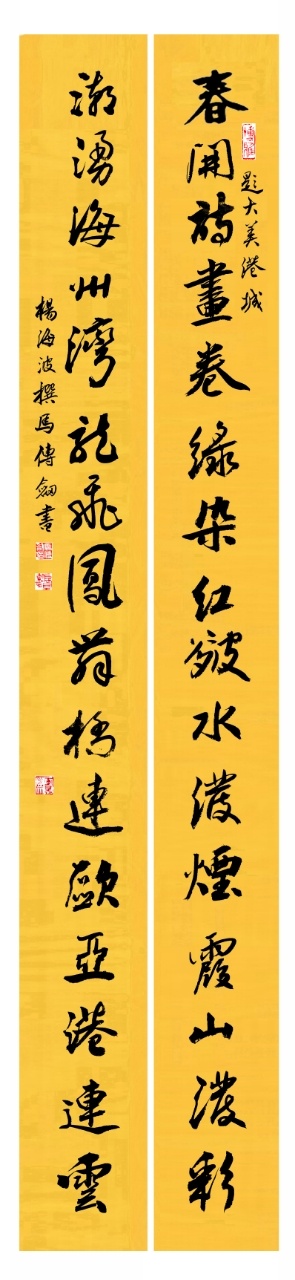 春開詩畫卷綠染紅皴水潑煙霞山潑彩
題大美港城
潮湧海州灣龍飛鳳舞橋連歐亞港連雲
楊海波撰馬傳劍書